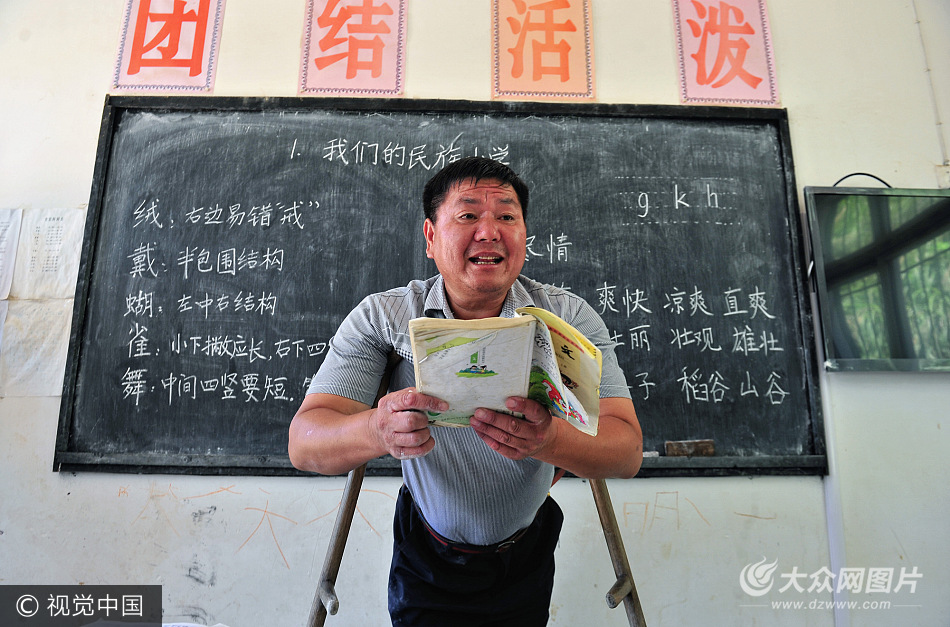 团 结 活 泼
1. 我们的民族小学
绒：右边易错“戒”
戴：半包围结构
蝴：左中右结构
雀：小下撇应长，右下四
舞：中间四竖要短.
g k h
情
爽快 凉爽 直爽
丽 壮观 雄壮
子 稻谷 山谷
文
© 视觉中国
大众网图片
www.dzwww.com